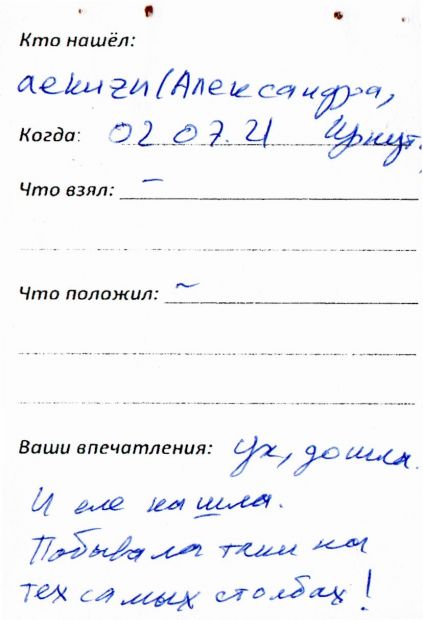 Кто нашёл:
aekizn (Александра,
Когда: 02 07. 21 Иркут.
Что взял: –
Что положил: ~
Ваши впечатления: Ух, дошла.
И еле нашла.
Побывала таки на
тех самых столбах!